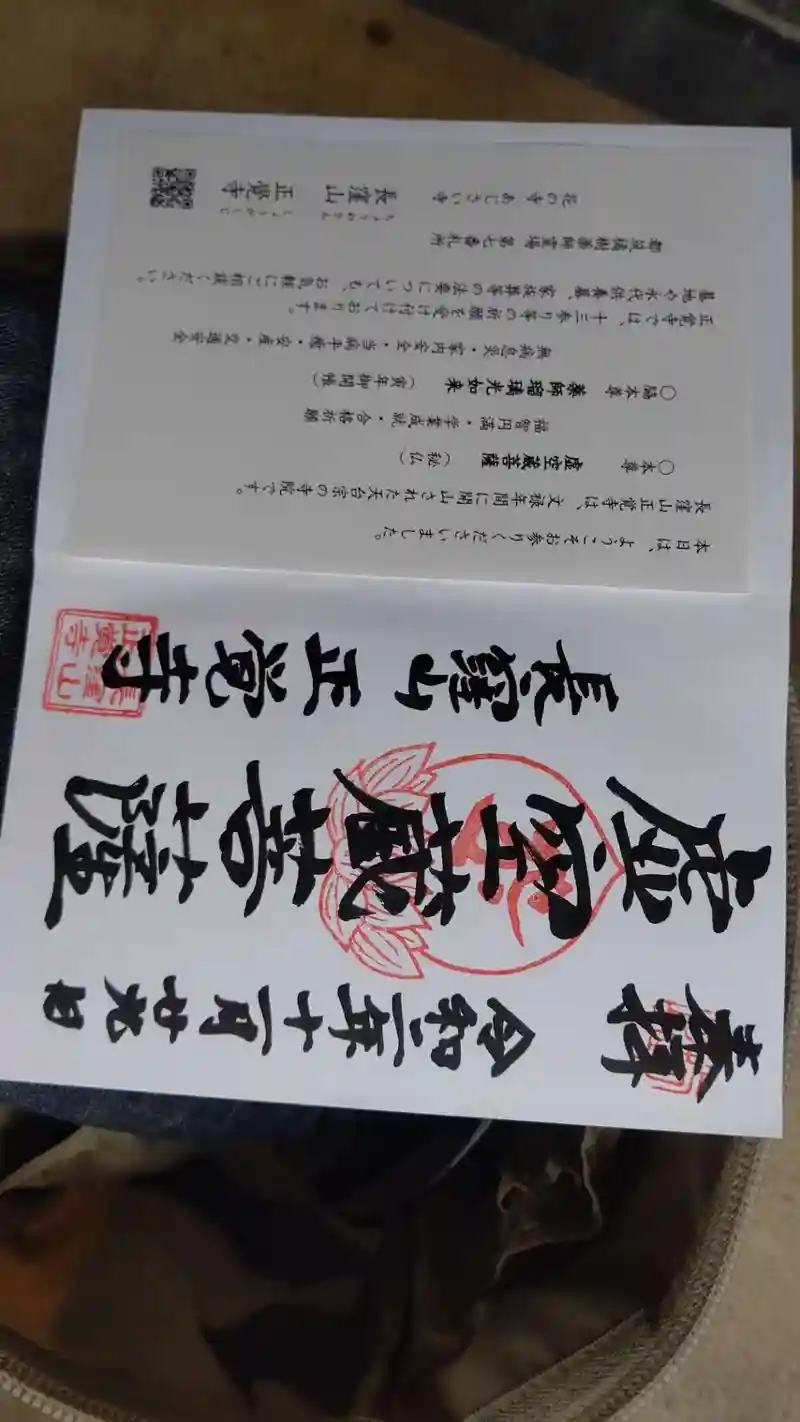 奉拝
令和二年十一月廿九日
虚空蔵菩薩
長窪山 正覚寺
長窪山
正覺寺
本日は、ようこそお参りくださいました。
長窪山正覚寺は、文禄年間に開山された天台宗の寺院です。
○本尊 虚空蔵菩薩 (秘仏)
福智円満・学業成就・合格祈願
○脇本尊 薬師瑠璃光如来 (寅年御開帳)
無病息災・家内安全・当病平癒・安産・交通安全
正覚寺では、十三参り等の祈願を受け付けております。
墓地や永代供養墓、家族葬等の法要についても、お気軽にご相談ください。
都筑橘樹薬師霊場 第七番札所
花の寺 あじさい寺
長窪山 正覺寺
ちょうわさん しょうがくじ